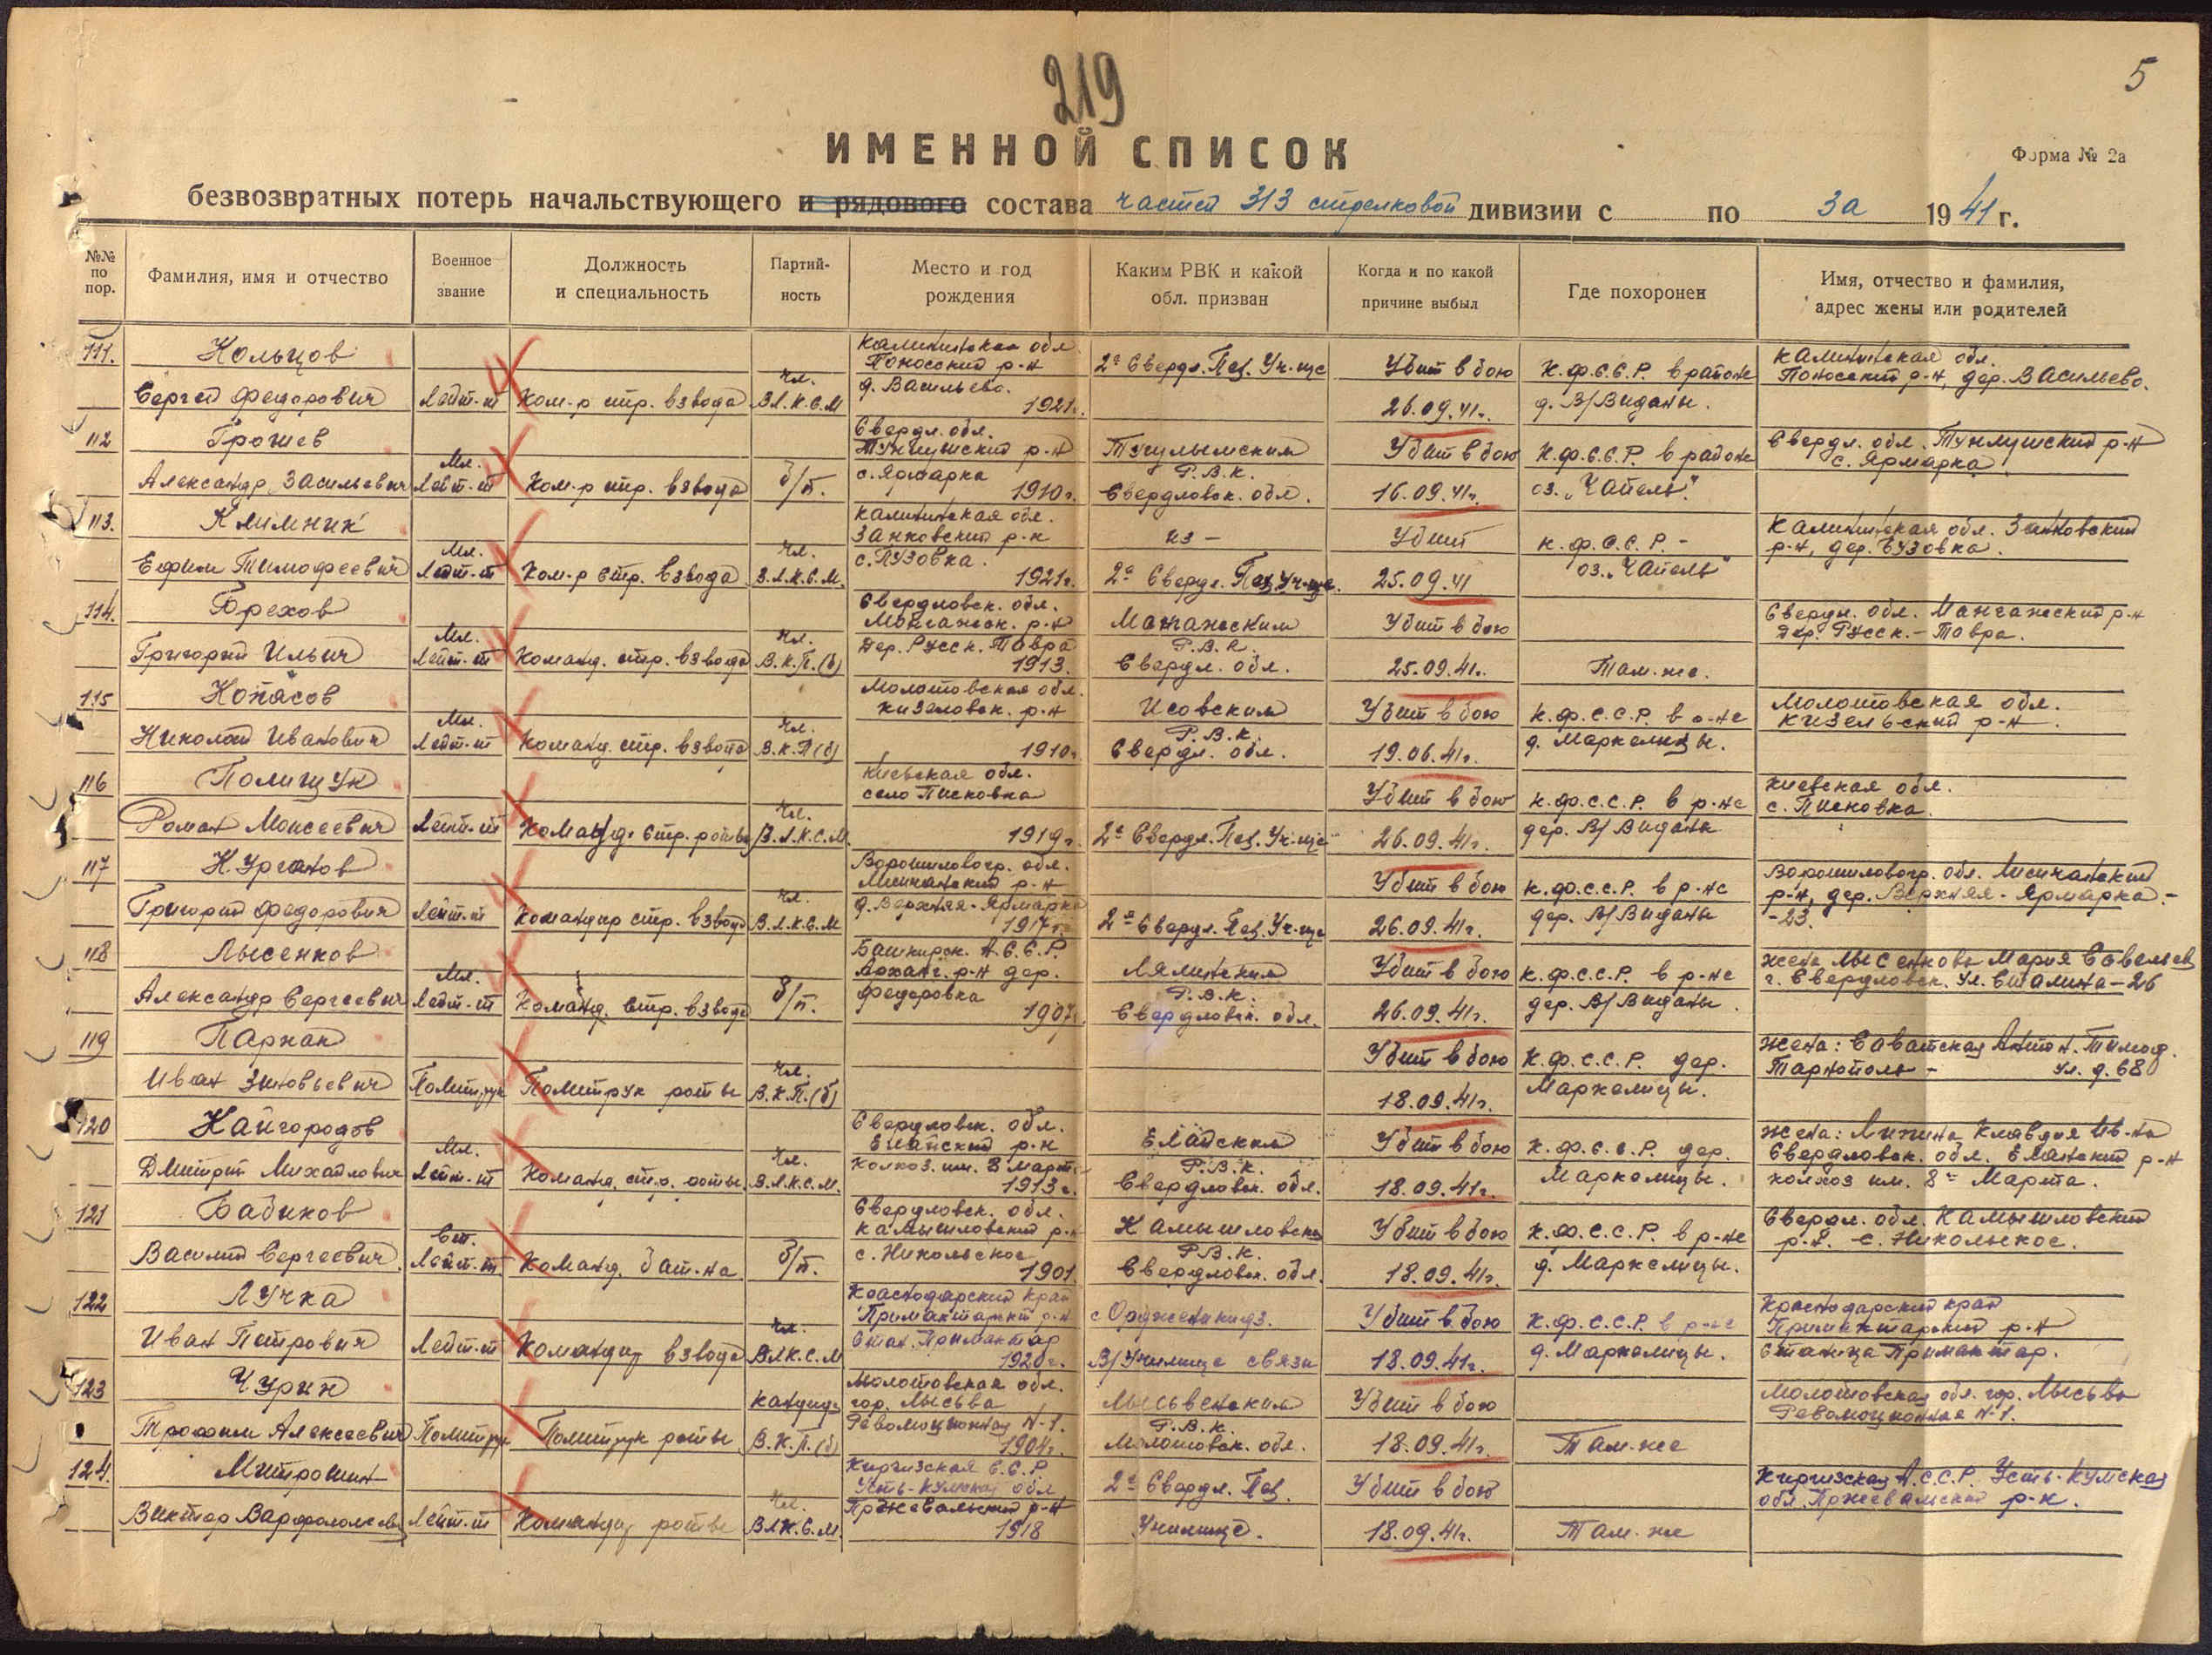 219
5
ИМЕННОЙ СПИСОК
Форма № 2а
безвозвратных потерь начальствующего и рядового состава частей 313 стрелковой дивизии с по за 1941 г.
№№ по пор.
Фамилия, имя и отчество
Военное звание
Должность и специальность
Партий-ность
Место и год рождения
Каким РВК и какой обл. призван
Когда и по какой причине выбыл
Где похоронен
Имя, отчество и фамилия, адрес жены или родителей
111. Кольцов
Сергей Федорович
Лейт-т
Ком-р стр. взвода
Чл. В.Л.К.С.М
Калининская обл.
р-н
д. Васильево.
1921г.
2е Свердл. Пех. Уч-ще
Убит в бою
26.09.41г.
К.Ф.С.С.Р. в районе
д. В/Видакы.
Калининская обл.
р-н, дер. Васильево.
112 Грошев
Александр Васильевич
Мл. Лейт-т
Ком-р стр. взвода
б/п.
Свердл. обл.
р-н
с. Ярмарка
1910г.
Тугулымским
Р.В.К.
Свердловск. обл.
Убит в бою
16.09.41г.
К.Ф.С.С.Р. в районе
оз. „Чапель".
Свердл. обл. р-н
с. Ярмарка
113. Климник
Ефим Тимофеевич
Мл. Лейт-т
Ком-р стр. взвода
Чл. В.Л.К.С.М.
Калининская обл.
р-н
1921г.
из -
2е Свердл. Пех. Уч-ще.
Убит
25.09.41
К.Ф.С.С.Р. -
оз. „Чапель"
Калининская обл.
р-н, дер.
114. Брехов
Григорий Ильич
Мл. Лейт-т
Команд. стр. взвода
Чл. В.К.П.(б)
Свердловск. обл.
р-н
Дер. Русск. Тавра
1913.
Р.В.К.
Свердл. обл.
Убит в бою
25.09.41г.
Там-же.
Свердл. обл. р-н
дер. Русск.-Тавра.
115 Копасов
Николай Иванович
Мл. Лейт-т
Команд. стр. взвода
Чл. В.К.П(б)
Молотовская обл.
Кизеловск. р-н
1910г
Исовским
Р.В.К.
Свердл. обл.
Убит в бою
19.06.41г.
К.Ф.С.С.Р. в
д. Маркелицы.
Молотовская обл.
Кизельский р-н.
116 Полищук
Роман Моисеевич
Лейт-т
Команд. стр. роты
Чл. В.Л.К.С.М.
Киевская обл.
село Писковка
1919г.
2е Свердл. Пех. Уч-ще
Убит в бою
26.09.41г.
К.Ф.С.С.Р. в р-не
дер. В/Видакы
Киевская обл.
с. Писковка.
117 Курганов
Григорий Федорович
Лейт-т
Командир стр. взвода
Чл. В.Л.К.С.М
Ворошиловгр. обл.
Лисичанский р-н
д. Верхняя-Ярмарка
1917г.
2е Свердл. Пех. Уч-ще
Убит в бою
26.09.41г.
К.Ф.С.С.Р. в р-не
дер. В/Видакы
Ворошиловгр. обл. Лисичанский
р-н, дер. Верхняя-Ярмарка.-
-23.
118 Лысенков
Александр Сергеевич
Мл. Лейт-т
Команд. стр. взвода
б/п.
Башкирск. А.С.С.Р.
Арханг. р-н дер.
Федоровка
1907г.
Лялинским
Р.В.К.
Свердловск. обл.
Убит в бою
26.09.41г.
К.Ф.С.С.Р. в р-не
дер. В/Видакы.
жена Лысенкова Мария Савельев
г. Свердловск. Ул. Сталина-26
119 Паркан
Иван Зиновьевич
Политрук
Политрук роты
Чл. В.К.П.(б)
Убит в бою
18.09.41г.
К.Ф.С.С.Р. дер.
Маркелицы.
жена: Саватская Антон. Тимоф.
Тарнополь - ул. д. 68
120 Кайгородов
Дмитрий Михайлович
Мл. Лейт-т
Команд. стр. роты.
Чл. В.Л.К.С.М.
Свердловск. обл.
Еланский р-н
Колхоз. им. 8 Марта
1913г.
Еланским
Р.В.К.
Свердловск. обл.
Убит в бою
18.09.41г.
К.Ф.С.С.Р. дер.
Маркелицы.
жена: Клавдия Ив-на
Свердловск. обл. Еланский р-н
колхоз им. 8е Марта.
121 Бабиков
Василий Сергеевич.
Ст. Лейт-т
Команд. бат-на
б/п.
Свердловск. обл.
Камышловский р-н
с. Никольское
1901.
Камышловск
Р.В.К.
Свердловск. обл.
Убит в бою
18.09.41г.
К.Ф.С.С.Р. в р-не
д. Маркелицы.
Свердл. обл. Камышловский
р-н. с. Никольское.
122 Лучка
Иван Петрович
Лейт-т
Командир взвода
Чл. ВЛК.С.М
Краснодарский край
р-н
1920г.
с Орджоникидз.
В/Училище связи
Убит в бою
18.09.41г.
К.Ф.С.С.Р. в р-не
д. Маркелицы.
Краснодарский край
р-н
станица
123 Чурин
Трофим Алексеевич
Политрук
Политрук роты
кандид. В.К.П.(б)
Молотовская обл.
гор. Лысьва
Революционная N-1.
1904г.
Лысьвенским
Р.В.К.
Молотовск. обл.
Убит в бою
18.09.41г.
Там-же
Молотовская обл. гор. Лысьва
Революционная N-1.
124. Митрошин
Виктор Варфоломеев
Лейт-т
Командир роты
Чл. ВЛК.С.М.
Киргизская С.С.Р
обл
Пржевальский р-н
1918
2е Свердл. Пех.
Училище.
Убит в бою
18.09.41г.
Там-же
Киргизская А.С.С.Р.
обл. Пржевальский р-н.